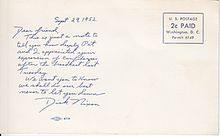 Sept 29, 1952
Dear friend,
This is just a note to
tell you how deeply Pat
and I appreciated your
expression of confidence
after the broadcast last
Tuesday.
We want you to know
we shall do our best
never to let you down.
Dick Nixon
U. S. POSTAGE
2c PAID
Washington, D. C.
Permit 6149